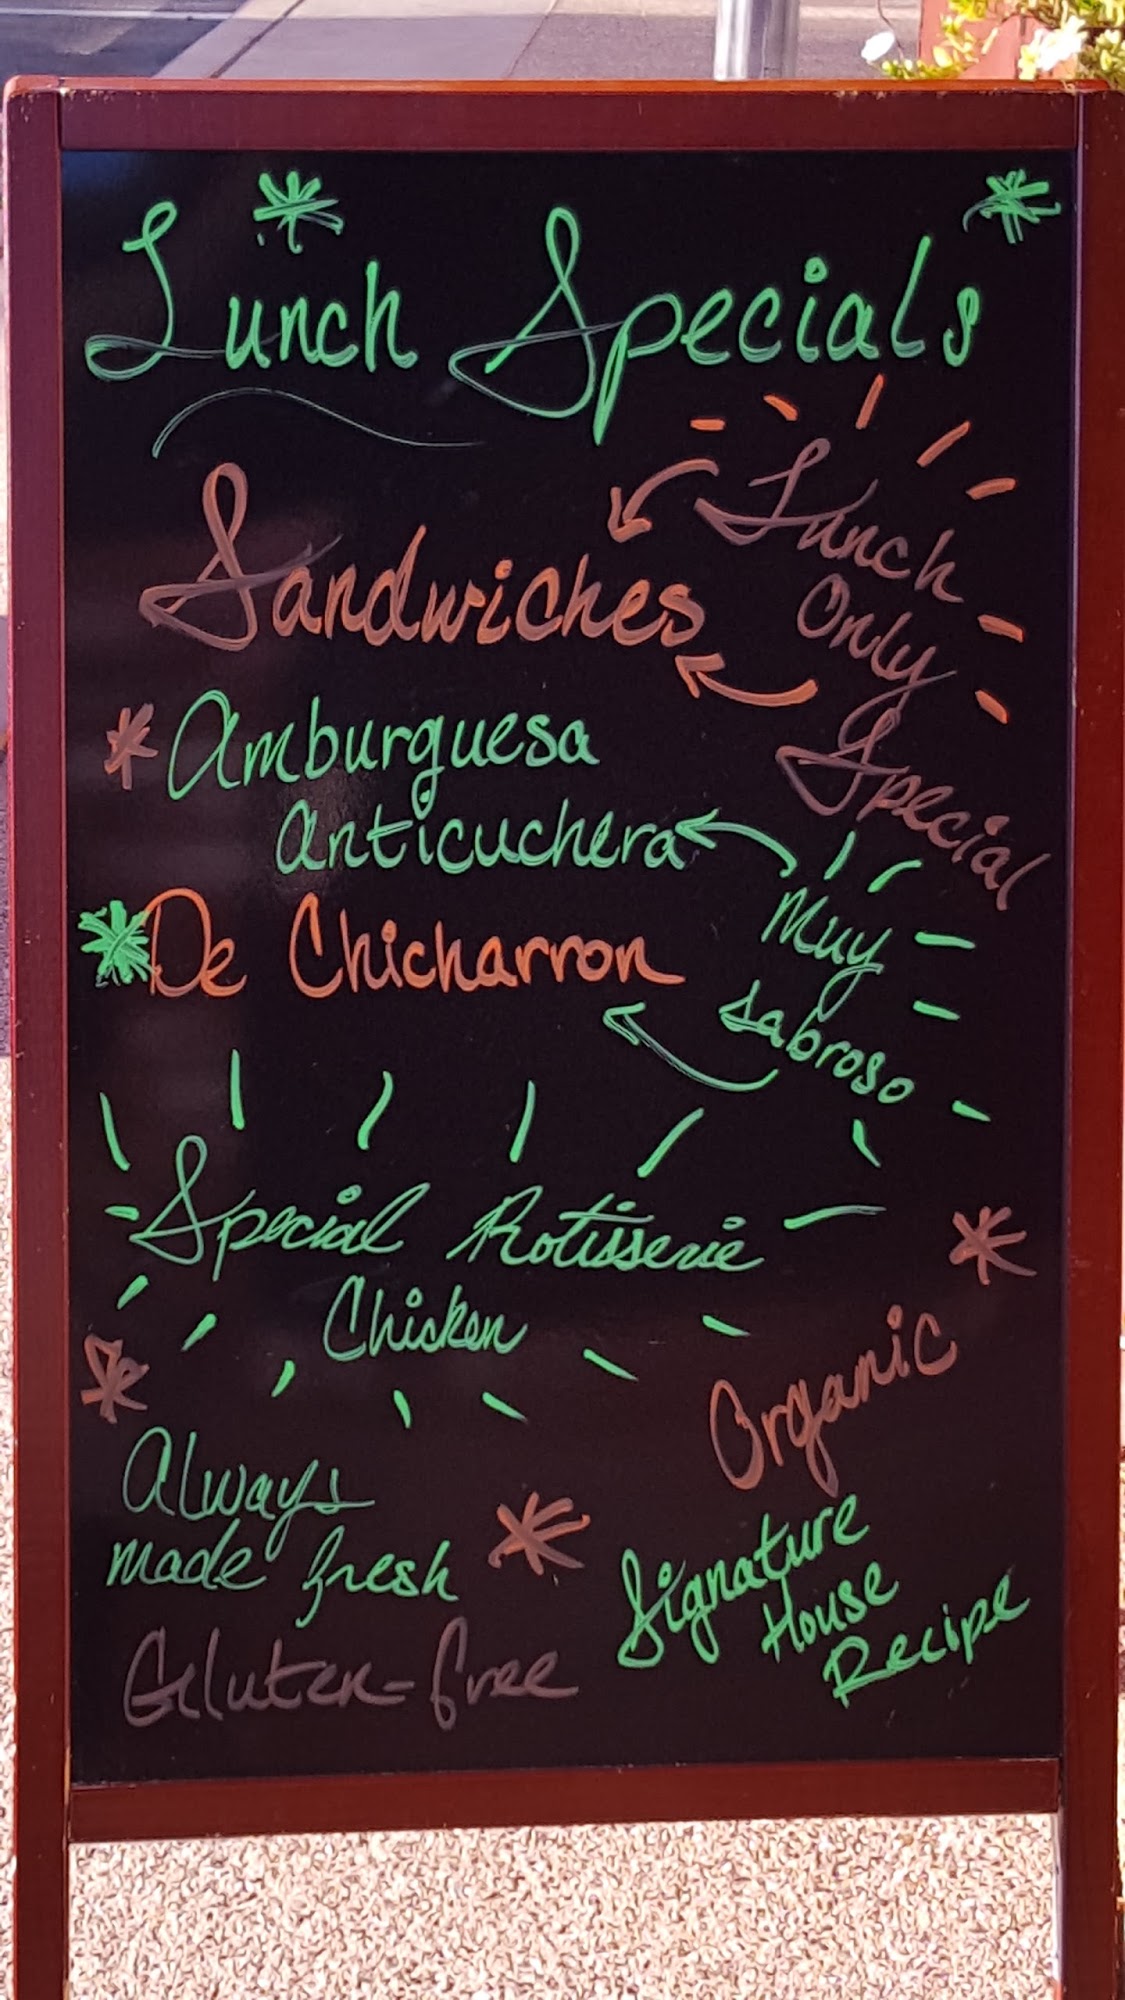 Lunch Specials
Sandwiches
Lunch
Only
Special
Amburguesa
Anticuchera
De Chicharron
Muy
sabroso
Special Rotisserie
Chicken
Organic
Always
made fresh
Gluten-free
Signature
House
Recipe